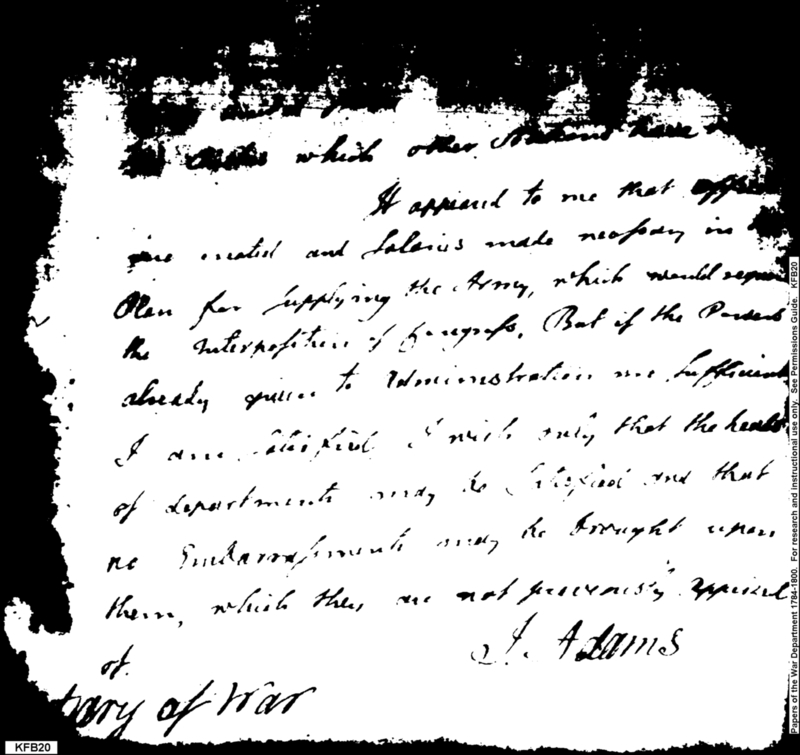 which other
It appeared to me that
were created and Salaries made necessary in
Plan for supplying the Army, which would require
the Interposition of Congress. But if the Powers
already given to Administration are sufficient
I am satisfied. I wish only that the heads
of departments may be satisfied and that
no Embarrassments may be brought upon
them, which they are not previously apprised
of.
J. Adams
of War
KFB20
Papers of the War Department 1784-1800. For research and instructional use only. See Permissions Guide. KFB20